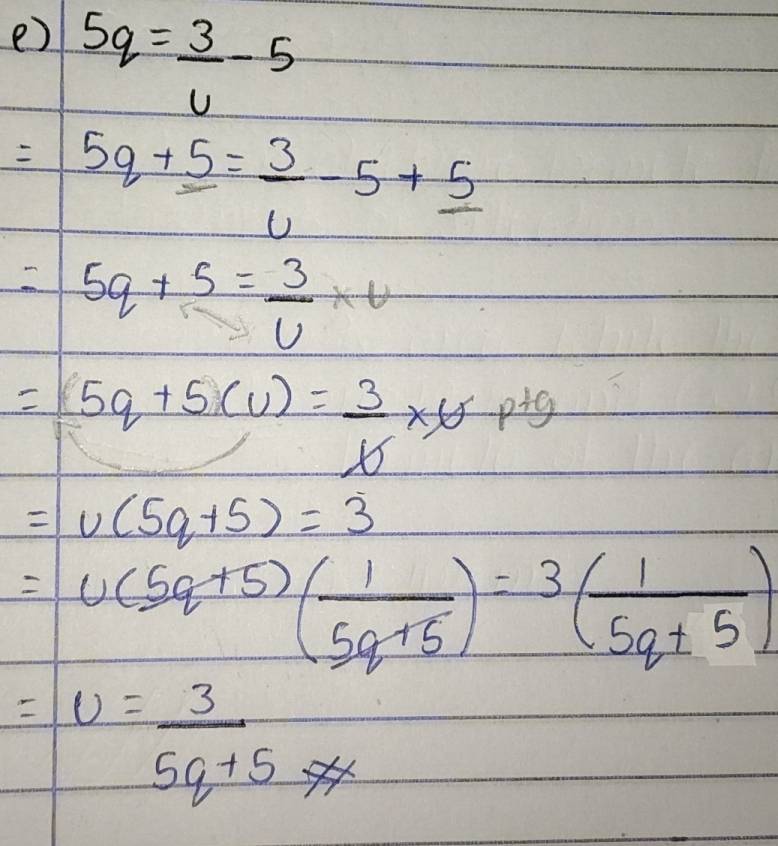 e) 5q = 3/U - 5
= 5q + 5 = 3/U - 5 + 5
= 5q + 5 = 3/U × U
= (5q + 5)(U) = 3/U × U ptg
= U(5q+5) = 3
= U(5q+5)(1/5q+5) = 3(1/5q+5)
= U = 3/5q+5 #